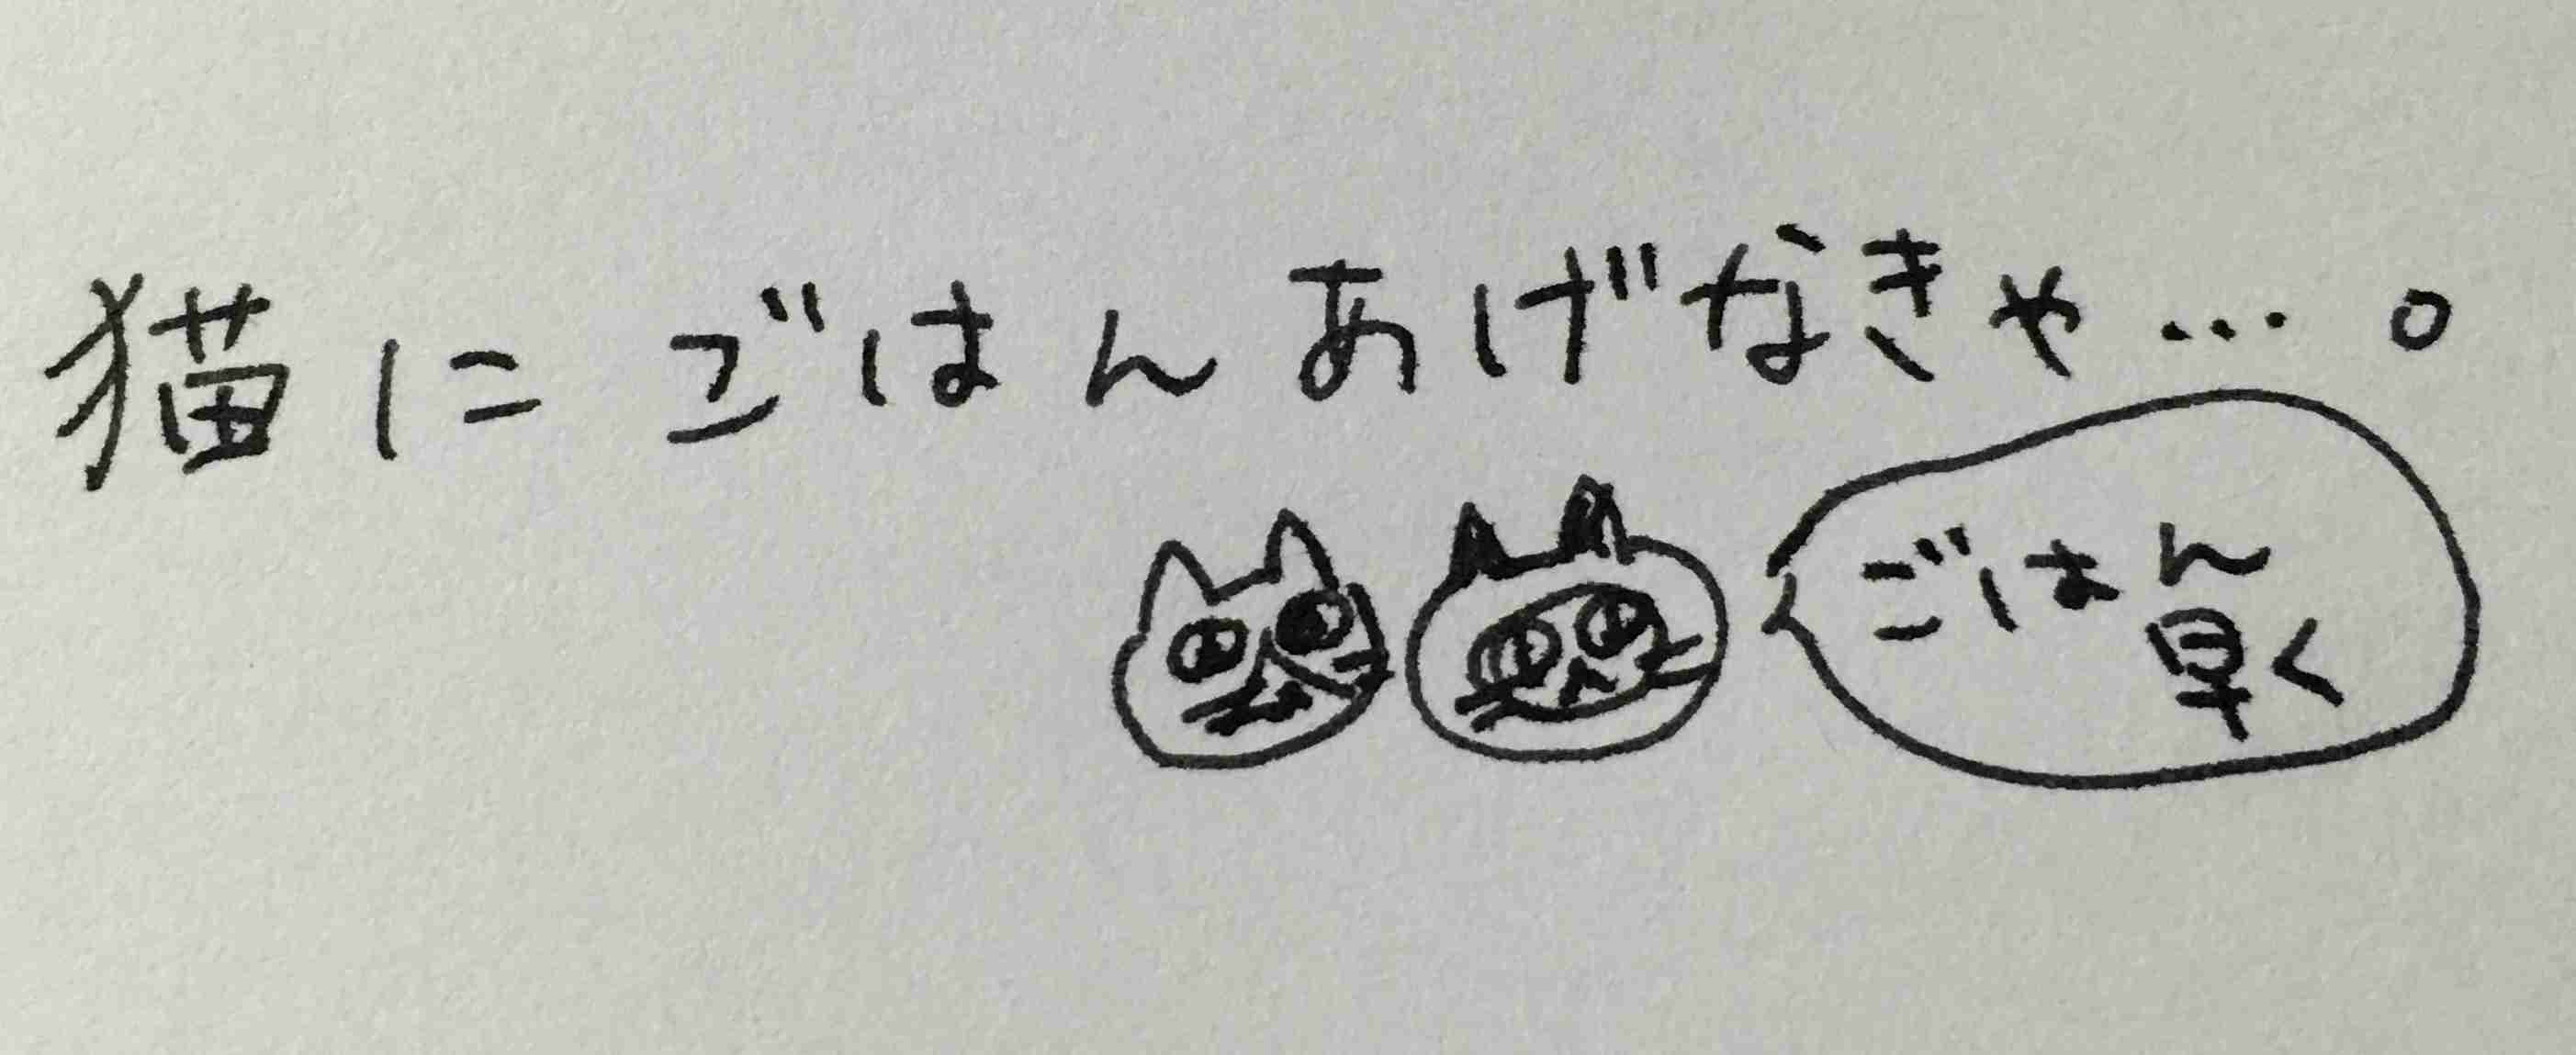 猫にごはんあげなきゃ…。
ごはん
早く